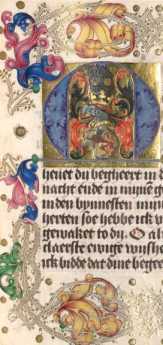 heuet dy begheert in d
nacht ende in mijnē g
in den bynnesten mijn
herten soe hebbe ick
gewaket to dy. O al
claerste ewige wijshe
ick bidde dat dine begee